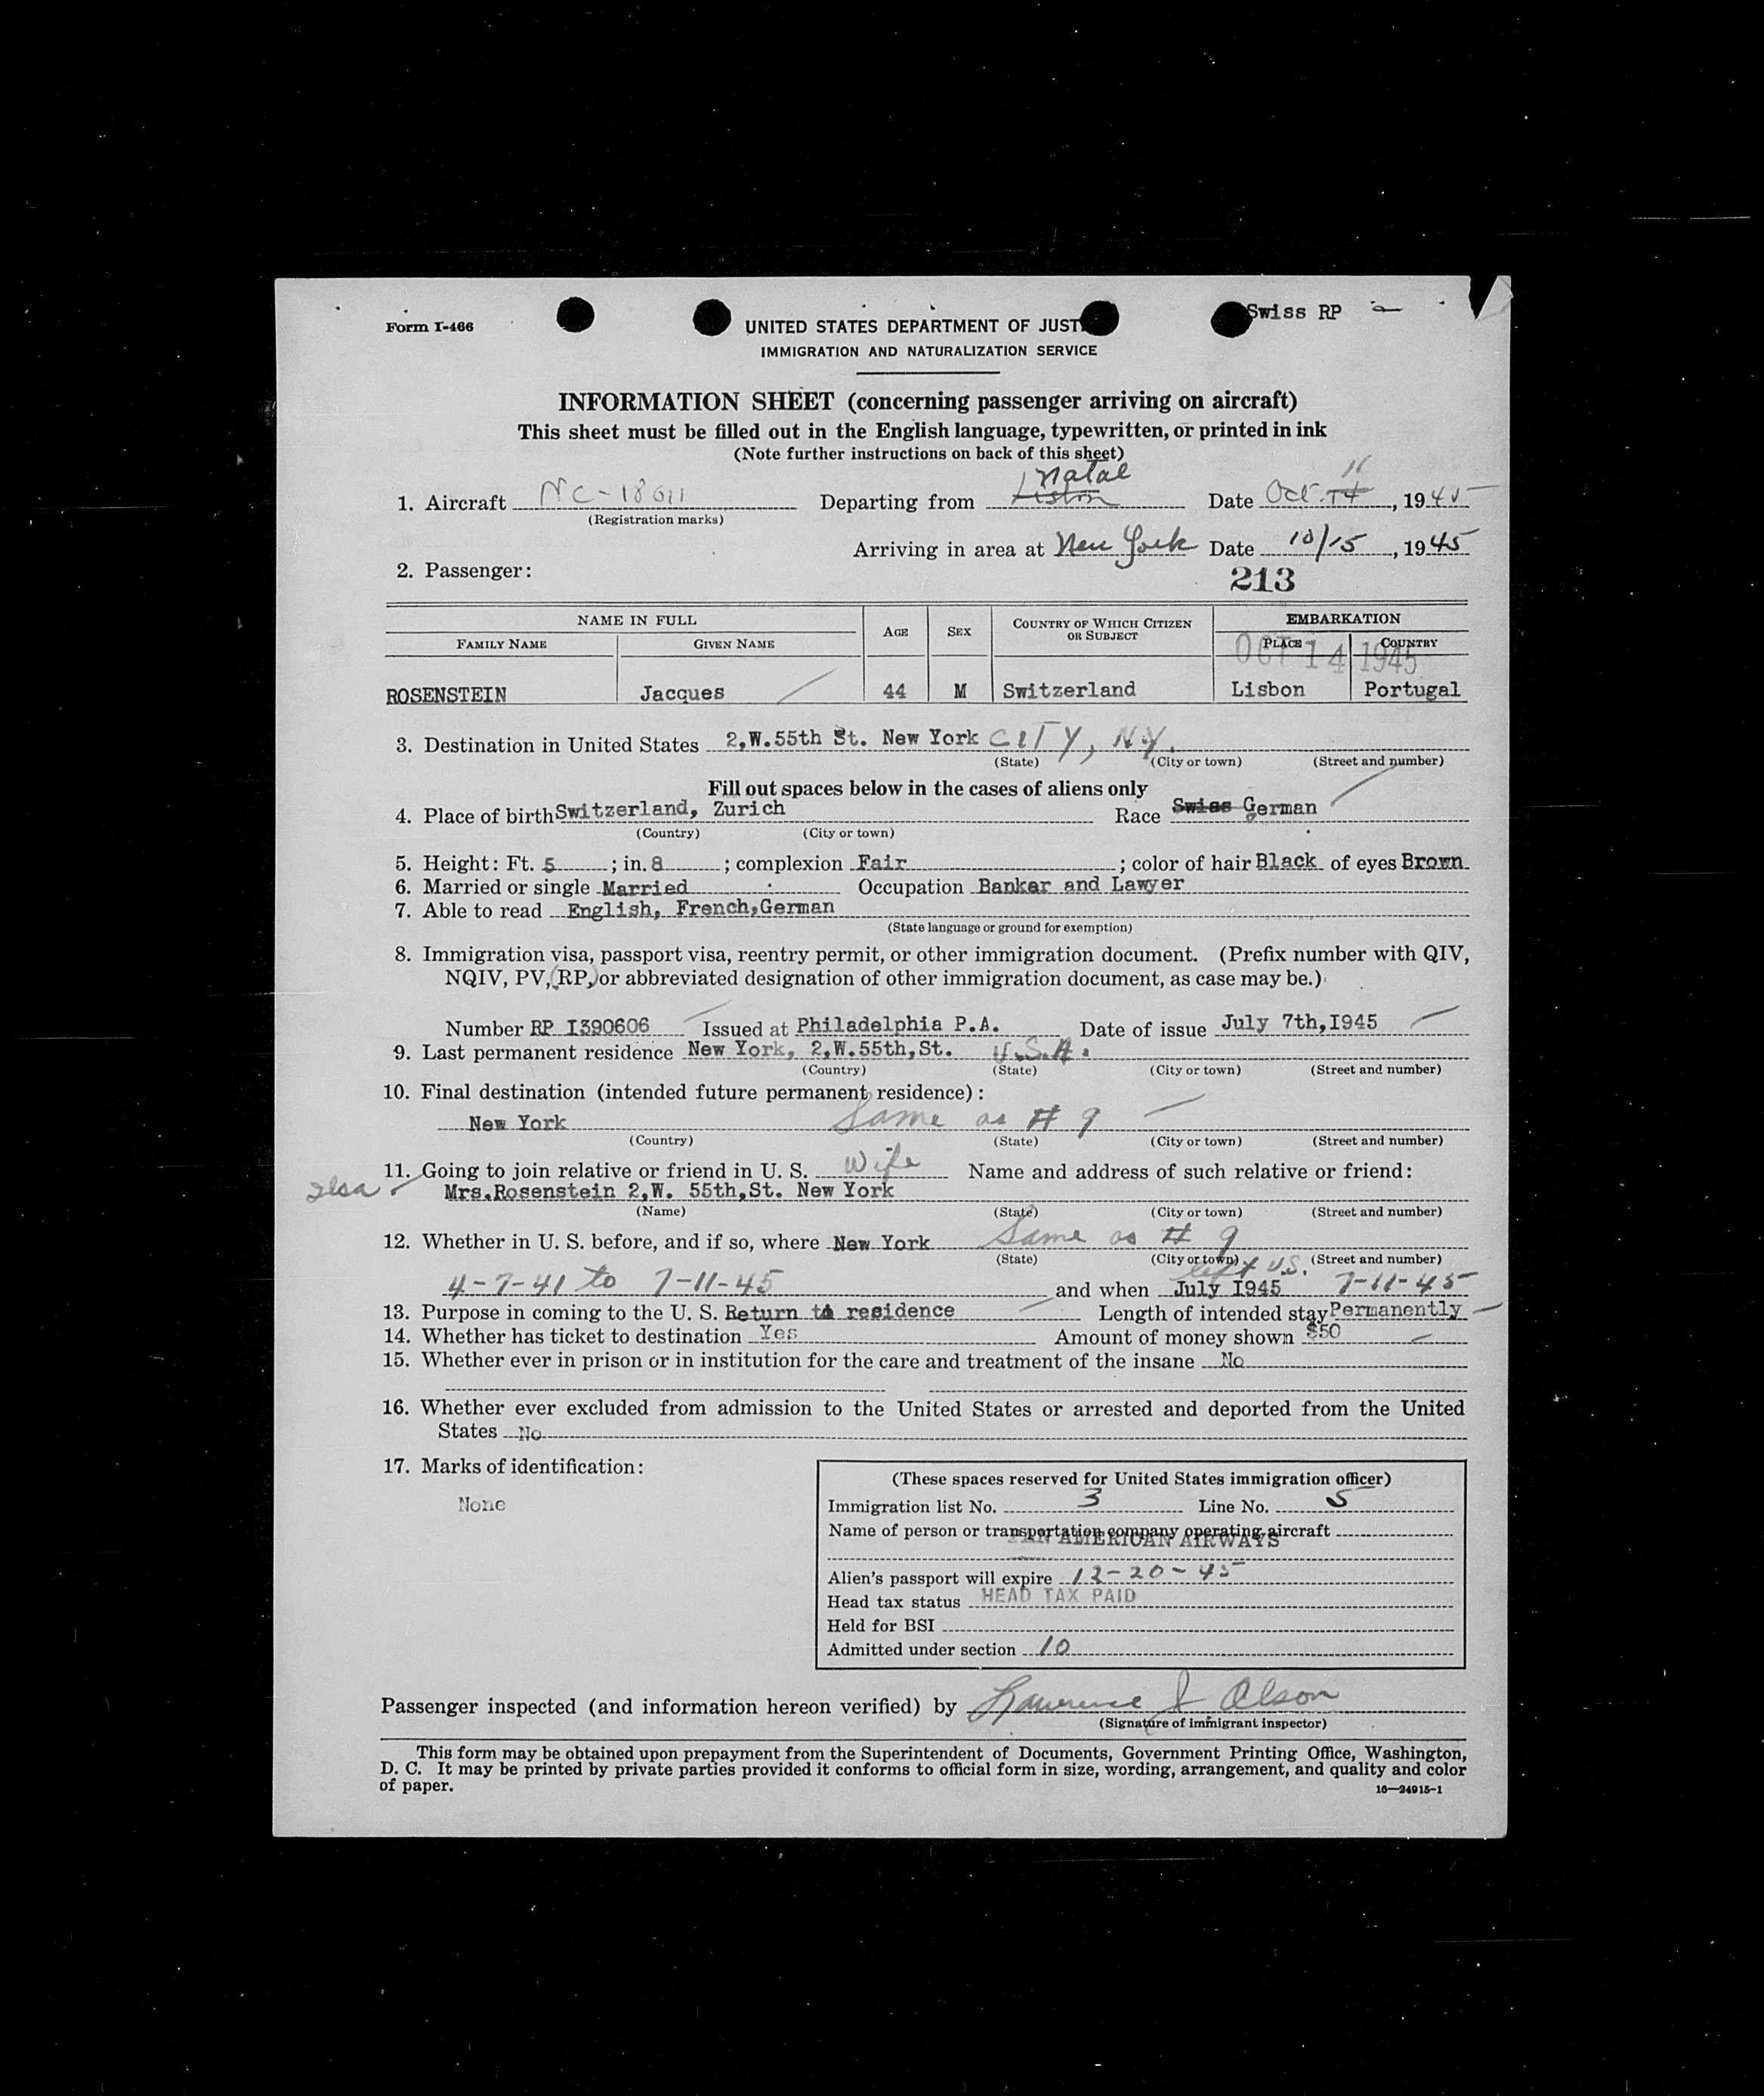 Form I-466
UNITED STATES DEPARTMENT OF JUST
Swiss RP
IMMIGRATION AND NATURALIZATION SERVICE
INFORMATION SHEET (concerning passenger arriving on aircraft)
This sheet must be filled out in the English language, typewritten, or printed in ink
(Note further instructions on back of this sheet)
Natal 11
1. Aircraft NC-18611 Departing from Lisbon Date Oct. 14, 1945
(Registration marks)
Arriving in area at New York Date 10/15, 1945
2. Passenger:
213
NAME IN FULL AGE SEX COUNTRY OF WHICH CITIZEN OR SUBJECT EMBARKATION
FAMILY NAME GIVEN NAME PLACE COUNTRY
OCT 14 1945
ROSENSTEIN Jacques 44 M Switzerland Lisbon Portugal
3. Destination in United States 2,W.55th St. New York CITY, N.Y.
(State) (City or town) (Street and number)
Fill out spaces below in the cases of aliens only
4. Place of birth Switzerland, Zurich Race Swiss German
(Country) (City or town)
5. Height: Ft. 5; in. 8; complexion Fair; color of hair Black of eyes Brown
6. Married or single Married Occupation Banker and Lawyer
7. Able to read English, French,German
(State language or ground for exemption)
8. Immigration visa, passport visa, reentry permit, or other immigration document. (Prefix number with QIV,
NQIV, PV, RP, or abbreviated designation of other immigration document, as case may be.)
Number RP I390606 Issued at Philadelphia P.A. Date of issue July 7th,I945
9. Last permanent residence New York, 2,W.55th,St. U.S.A.
(Country) (State) (City or town) (Street and number)
10. Final destination (intended future permanent residence):
New York Same as # 9
(Country) (State) (City or town) (Street and number)
11. Going to join relative or friend in U. S. Wife Name and address of such relative or friend:
Ilsa Mrs.Rosenstein 2,W. 55th,St. New York
(Name) (State) (City or town) (Street and number)
12. Whether in U. S. before, and if so, where New York Same as # 9
(State) (City or town) (Street and number)
left U.S.
4-7-41 to 7-11-45 and when July I945 7-11-45
13. Purpose in coming to the U. S. Return to residence Length of intended stay Permanently
14. Whether has ticket to destination Yes Amount of money shown $50
15. Whether ever in prison or in institution for the care and treatment of the insane No
16. Whether ever excluded from admission to the United States or arrested and deported from the United
States No
17. Marks of identification:
None
(These spaces reserved for United States immigration officer)
Immigration list No. 3 Line No. 5
Name of person or transportation company operating aircraft
PAN AMERICAN AIRWAYS
Alien's passport will expire 12-20-45
Head tax status HEAD TAX PAID
Held for BSI
Admitted under section 10
Passenger inspected (and information hereon verified) by Lawrence J Olson
(Signature of immigrant inspector)
This form may be obtained upon prepayment from the Superintendent of Documents, Government Printing Office, Washington,
D. C. It may be printed by private parties provided it conforms to official form in size, wording, arrangement, and quality and color
of paper.
16—24915-1